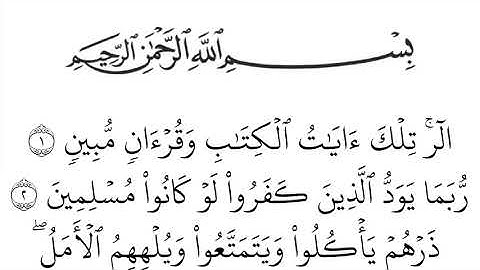 بِسْمِ ٱللَّهِ ٱلرَّحْمَٰنِ ٱلرَّحِيمِ
الٓرۚ تِلْكَ ءَايَٰتُ ٱلْكِتَٰبِ وَقُرْءَانٖ مُّبِينٖ ١
رُّبَمَا يَوَدُّ ٱلَّذِينَ كَفَرُواْ لَوْ كَانُواْ مُسْلِمِينَ ٢
ذَرْهُمْ يَأْكُلُواْ وَيَتَمَتَّعُواْ وَيُلْهِهِمُ ٱلْأَمَلُۖ